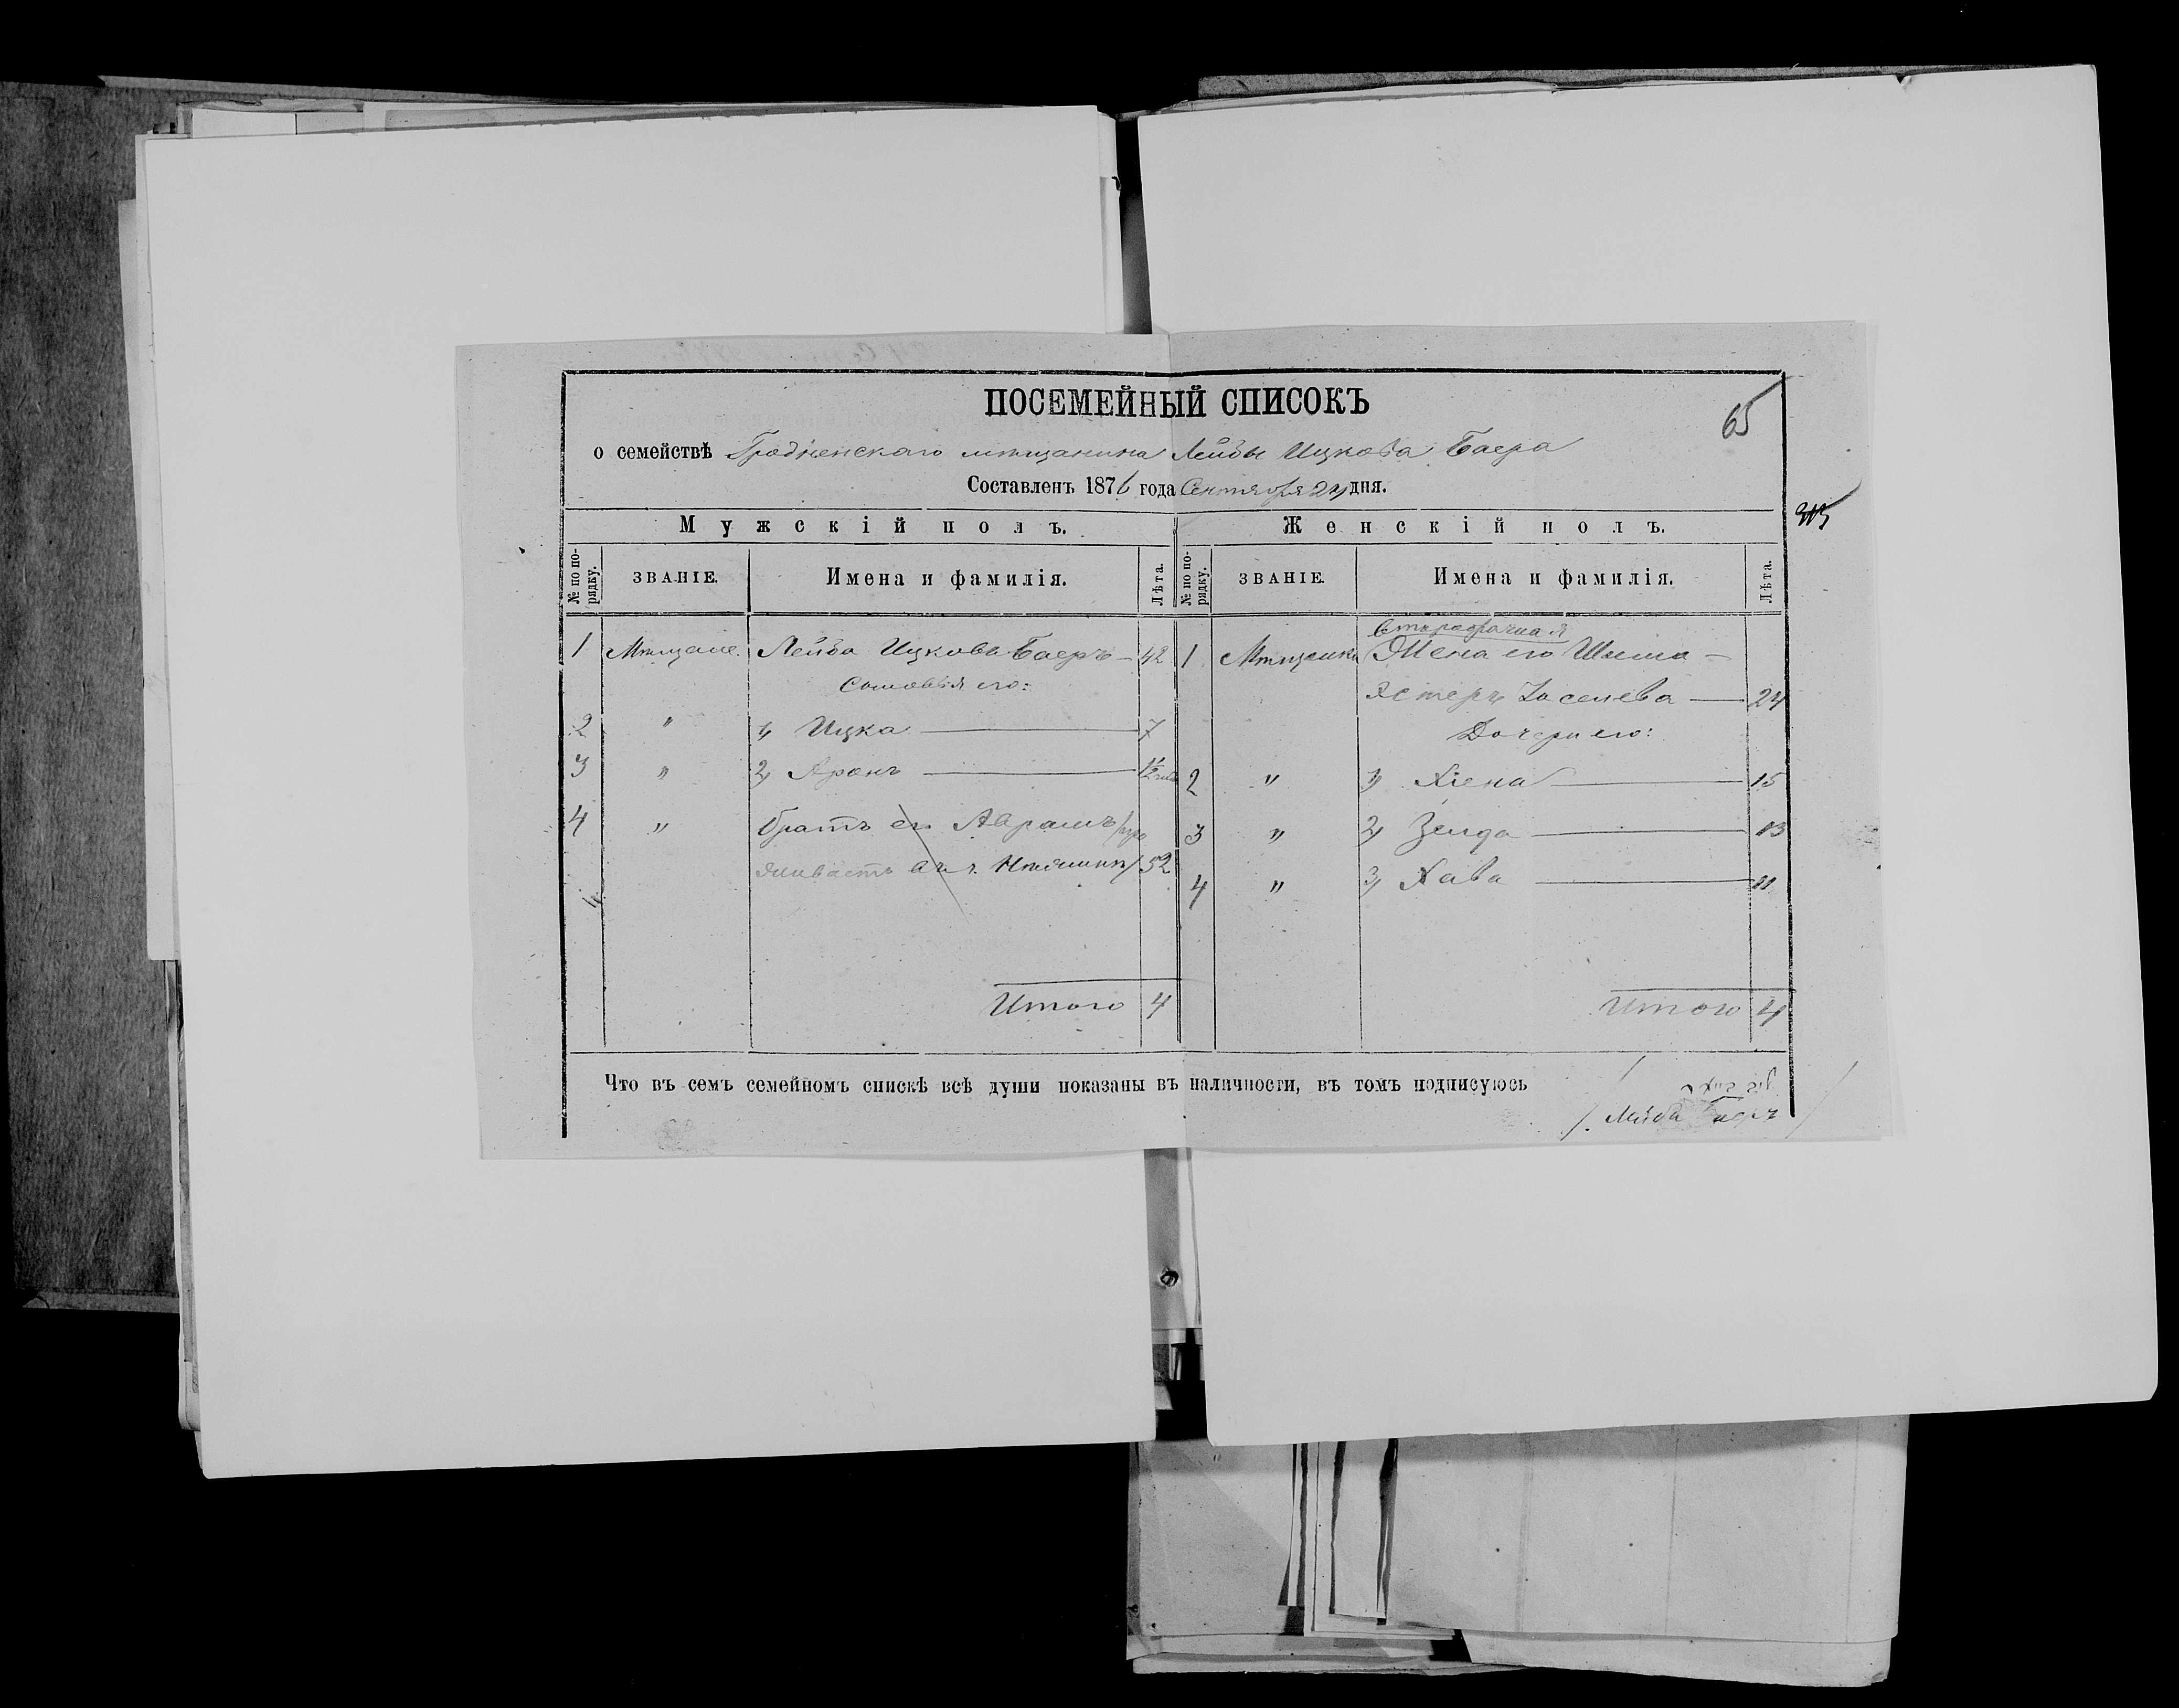 ПОСЕМЕЙНЫЙ СПИСОКЪ
65
о семействѣ Гродненскаго мѣщанина Лейбы Ицкова Баера
Составленъ 1876 года Сентября 24 дня.
Мужскій полъ. Женскій полъ.
№ по порядку. ЗВАНІЕ. Имена и фамилія. Лѣта. № по порядку. ЗВАНІЕ. Имена и фамилія. Лѣта.
Второбрачная
1 Мѣщане. Лейба Ицковъ Баеръ — 42 1 Мѣщанки Жена его Шима —
Сыновья его:
Эстеръ Іоселева — 24
2 " 1) Ицка — 7
Дочери его:
3 " 2) Аронъ — 1/2
2 " 1) Хіена — 15
4 " Братъ его Аврамъ /про
3 " 2) Зелда — 13
живаетъ въ г. / 52
4 " 3) Хава — 11
Итого 4 Итого 4
Что въ семъ семейномъ спискѣ всѣ души показаны въ наличности, въ томъ подписуюсь
/. Лейба Баеръ /